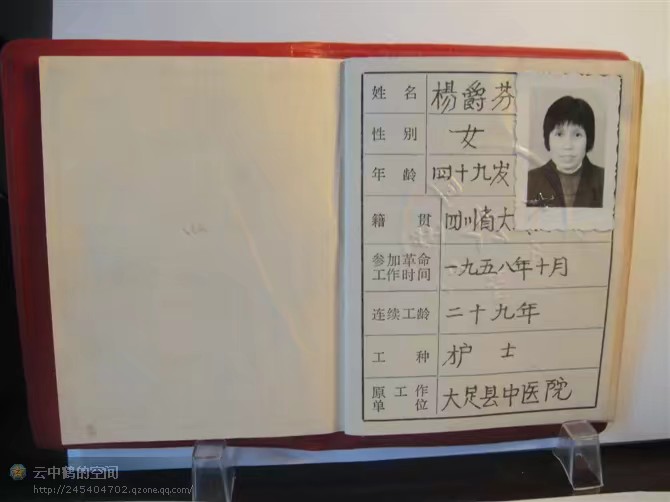 姓名 楊爵芬
性别 女
年龄 四十九岁
籍贯 四川省大
参加革命
工作时间 一九五八年十月
连续工龄 二十九年
工种 护士
原工作
单位 大足县中医院
云中鹤的空间
http://245404702.qzone.qq.com/